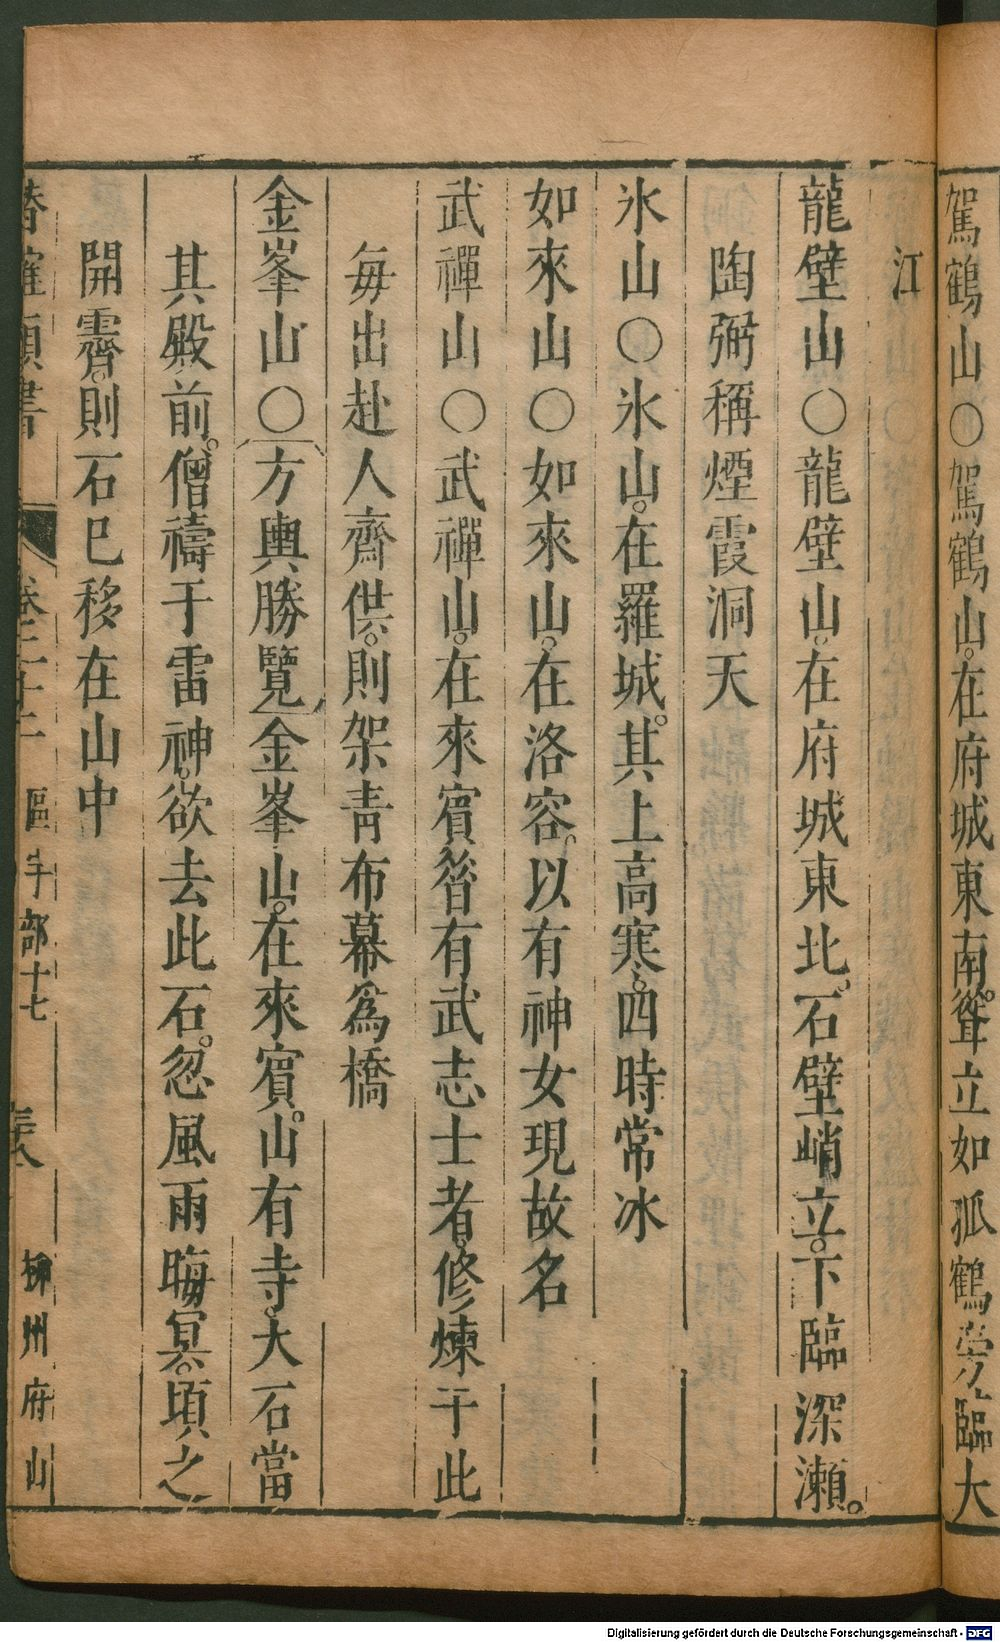 駕鶴山○駕鶴山。在府城東南。聳立如孤鶴。旁臨大
江
龍壁山○龍壁山。在府城東北。石壁峭立。下臨深瀨。
陶弼稱煙霞洞天
氷山○氷山。在羅城。其上高寒。四時常冰
如來山○如來山。在洛容。以有神女現故名
武禪山○武禪山。在來賓。昝有武志士者。修煉于此
每出赴人齋供。則架靑布幕爲橋
金峯山○方輿勝覽金峯山。在來賓。山有寺。大石當
其殿前。僧禱于雷神。欲去此石。忽風雨晦冥。頃之
開霽。則石已移在山中
潛確類書 卷二十二 區宇部十七 三十八 柳州府山
Digitalisierung gefördert durch die Deutsche Forschungsgemeinschaft - DFG